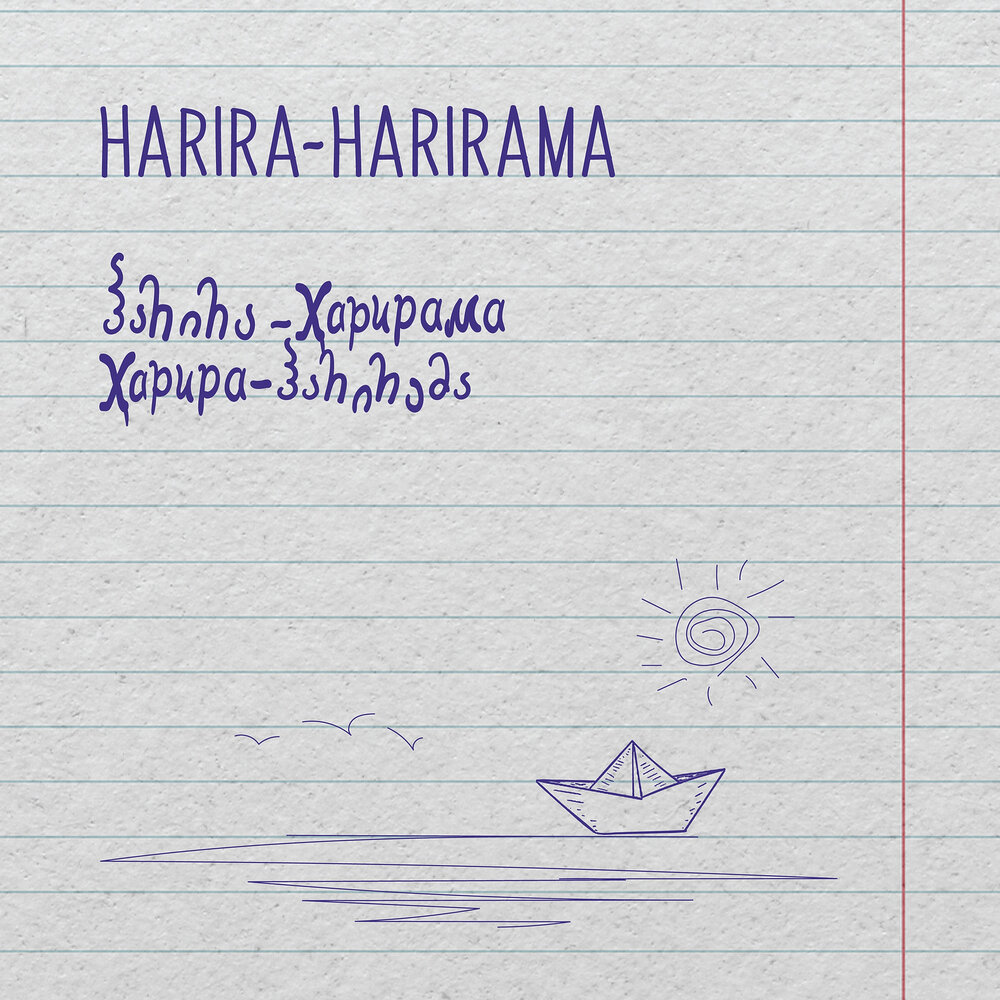 HARIRA-HARIRAMA
ჰარირა -Харирама
Харира-ჰარირემა